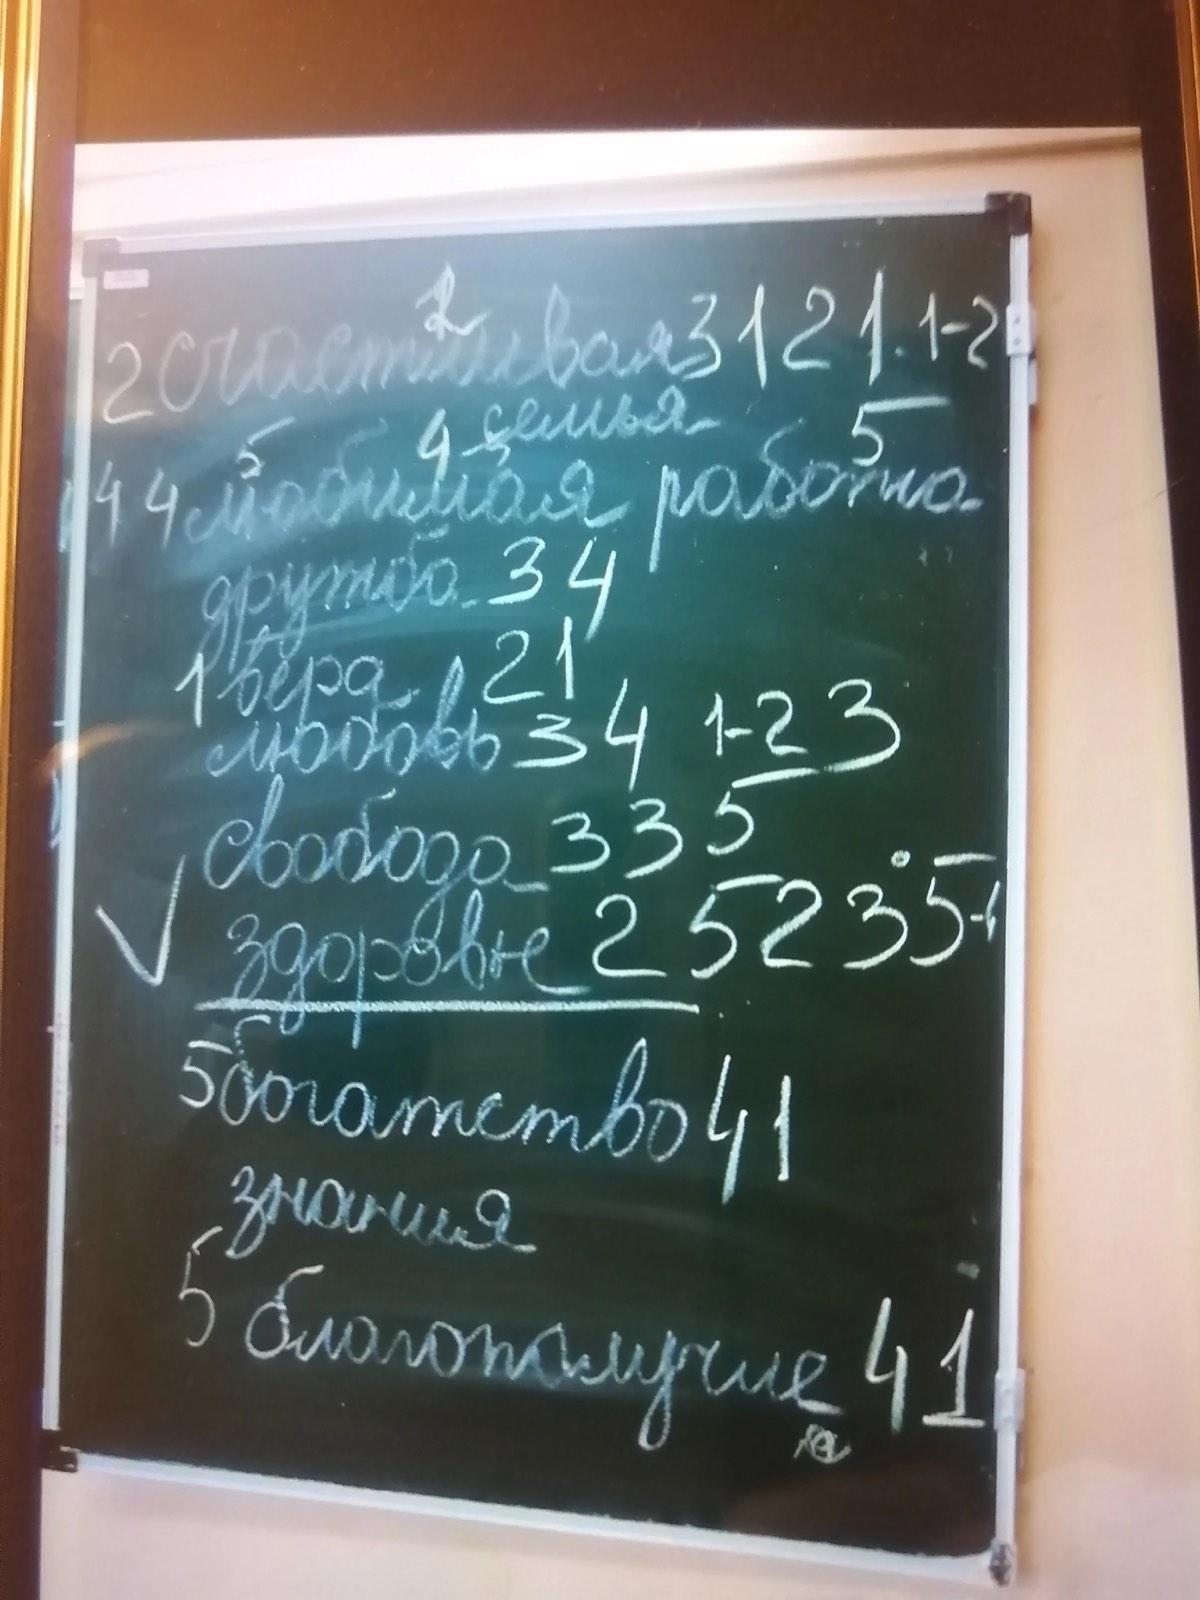 2
2 счастливая 3 1 2 1. 1-2
семья
5 4 5
4 4 любимая работа
дружба 3 4
1 вера 2 1
любовь 3 4 1-2 3
свобода 3 3 5
√ здоровье 2 5 2 3 5-1
5 богатство 4 1
знания
5 благополучие 4 1